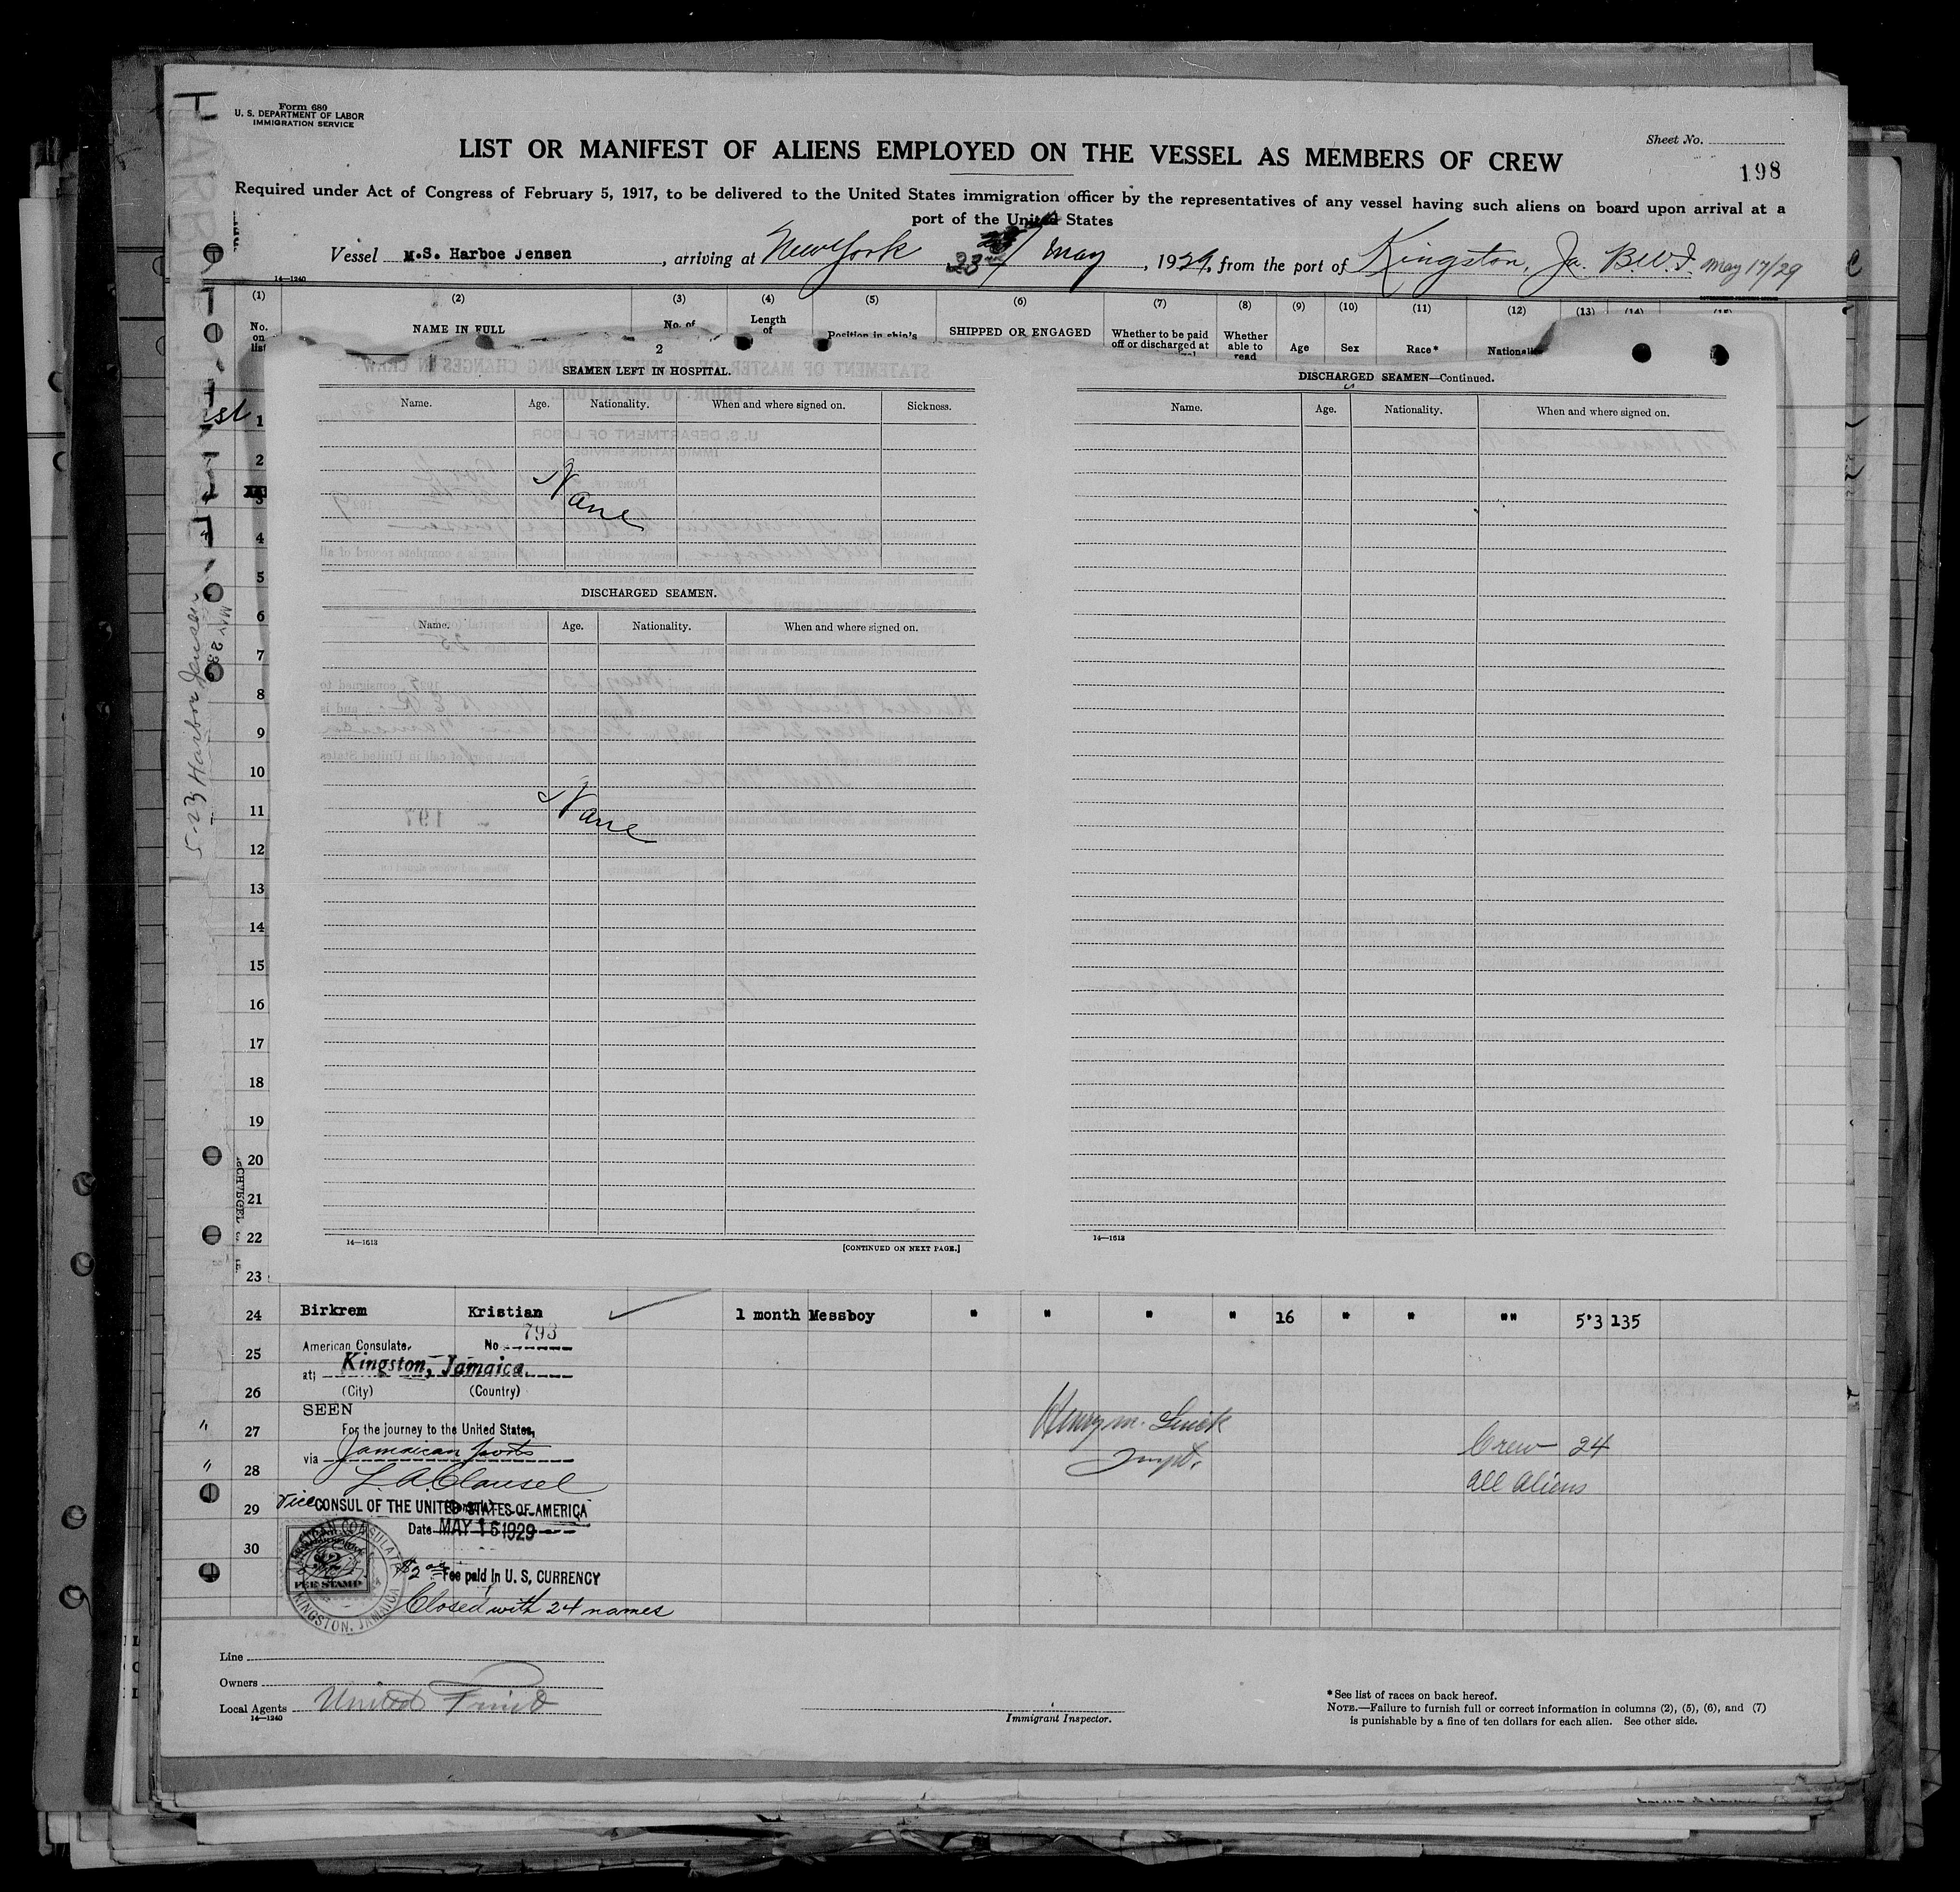 Form 680
U. S. DEPARTMENT OF LABOR
IMMIGRATION SERVICE
Sheet No.
198
LIST OR MANIFEST OF ALIENS EMPLOYED ON THE VESSEL AS MEMBERS OF CREW
Required under Act of Congress of February 5, 1917, to be delivered to the United States immigration officer by the representatives of any vessel having such aliens on board upon arrival at a
port of the United States
Vessel M.S. Harboe Jensen, arriving at New York 23rd May, 1929, from the port of Kingston, Ja. B.W.I. May 17/29
14—1240
(1) (2) (3) (4) (5) (6) (7) (8) (9) (10) (11) (12) (13) (14) (15)
No. on list
NAME IN FULL
No. of
Length of
Position in ship's
SHIPPED OR ENGAGED
Whether to be paid off or discharged at
Whether able to read
Age
Sex
Race*
2
SEAMEN LEFT IN HOSPITAL.
Name. Age. Nationality. When and where signed on. Sickness.
None
DISCHARGED SEAMEN.
Name. Age. Nationality. When and where signed on.
None
14—1613
[CONTINUED ON NEXT PAGE.]
DISCHARGED SEAMEN—Continued.
Name. Age. Nationality. When and where signed on.
14—1613
197
5-23 Harboe Jensen
1
2
3
4
5
6
7
8
9
10
11
12
13
14
15
16
17
18
19
20
21
22
23
24 Birkrem Kristian 1 month Messboy " " " " 16 " " "" 5'3 135
25
26
27
28
29
30
American Consulate, No. 793
at; Kingston, Jamaica.
(City) (Country)
SEEN
For the journey to the United States,
via Jamaican ports
L. A. Clausel
Vice CONSUL OF THE UNITED STATES OF AMERICA
Date MAY 15 1929
$2.00 Fee paid in U. S, CURRENCY
Closed with 24 names
AMERICAN CONSULATE
KINGSTON, JAMAICA
$2
PER STAMP
Henry M.
Inspt.
Crew 24
All Aliens
Line
Owners
Local Agents United Fruit
14—1240
Immigrant Inspector.
*See list of races on back hereof.
NOTE.—Failure to furnish full or correct information in columns (2), (5), (6), and (7)
is punishable by a fine of ten dollars for each alien. See other side.